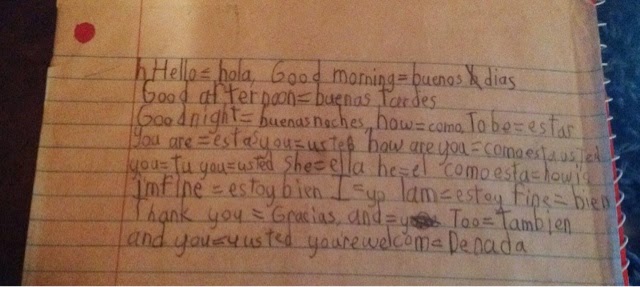 Hello=hola, Good morning=buenos dias
Good afternoon=buenas tardes
Goodnight=buenasnoches, how=como To be=estar
you are=estasyou=usted how are you=comoestausted
you=tu you=usted she=ella he=el comoesta=howis
imfine=estoybien I=yo Iam=estoy fine=bien
Thank you=Gracias, and=y Too=Tambien
and you=yusted yourewelcom=Denada